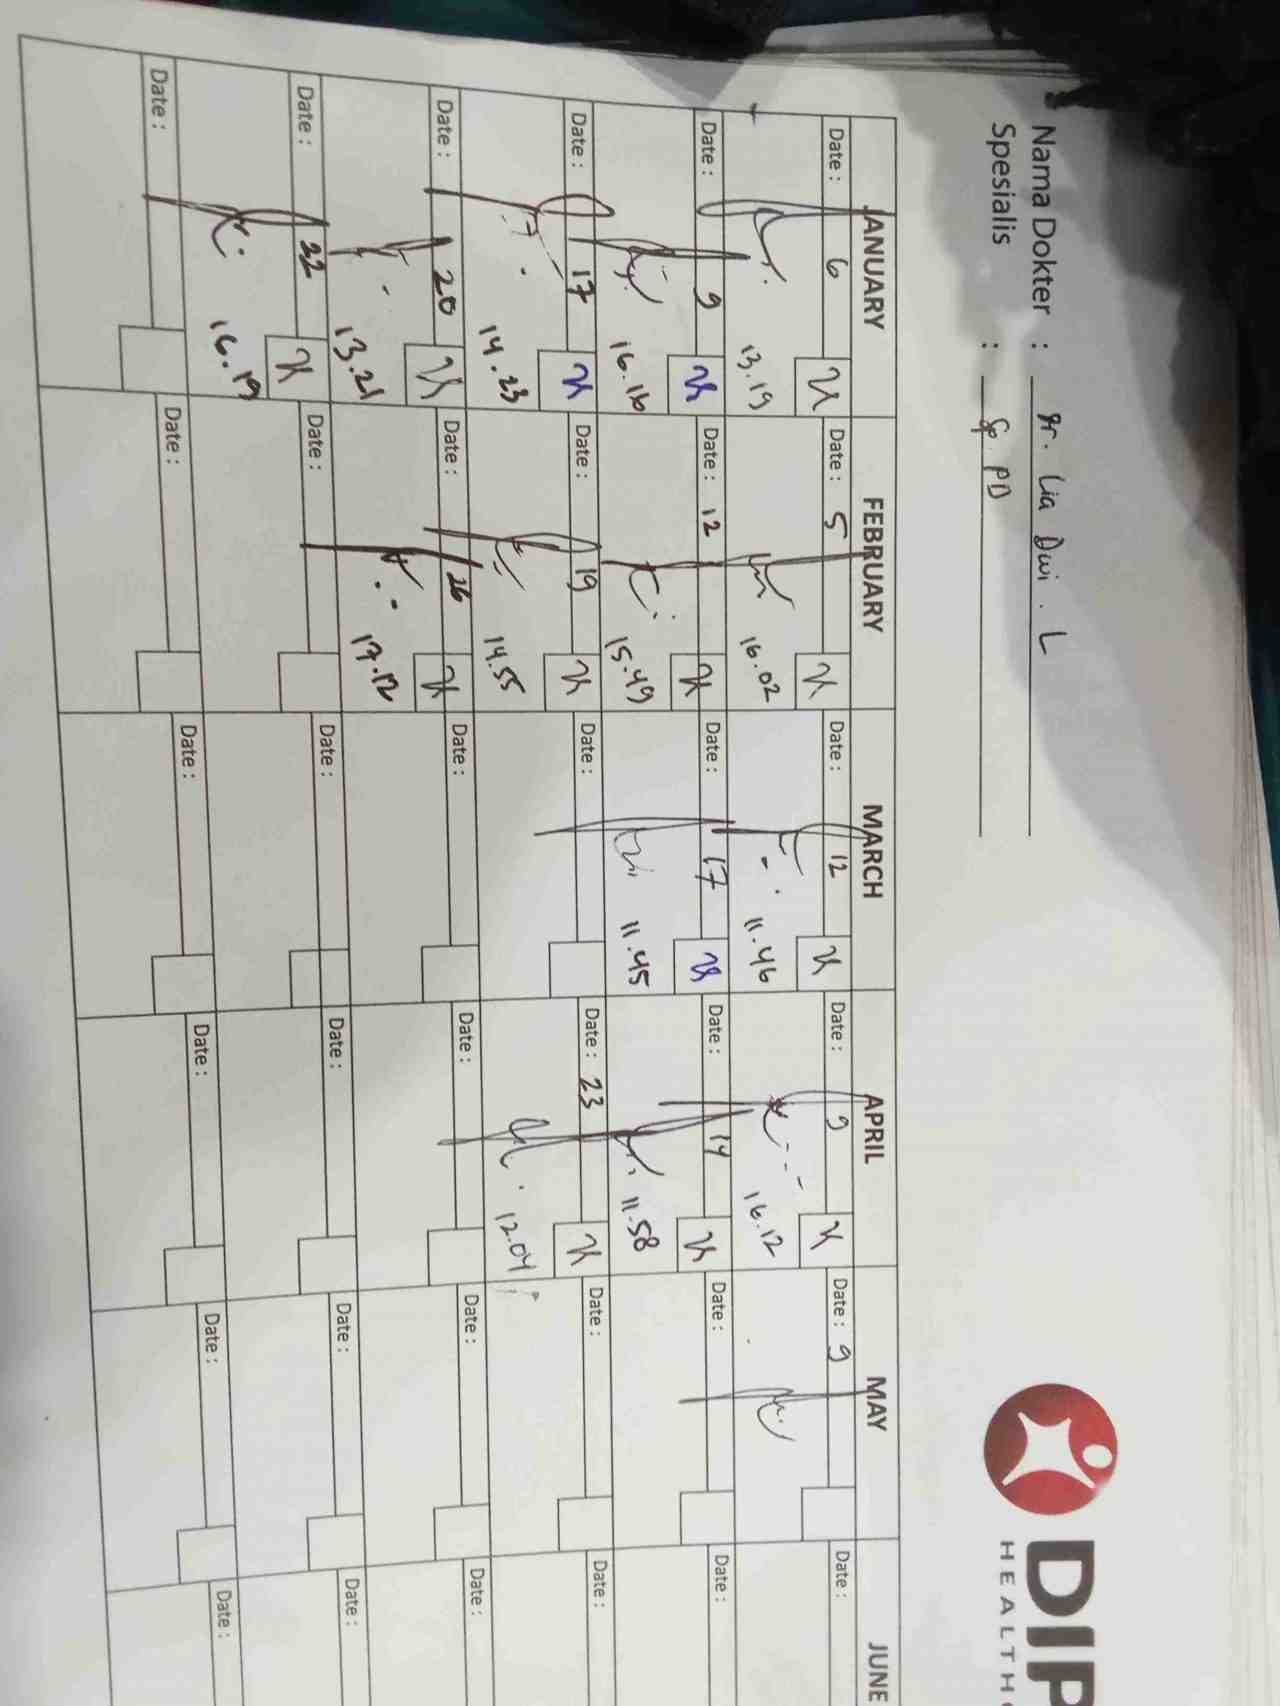 DIP
HEALTH
Nama Dokter : dr. Lia Dwi . L
Spesialis : Sp. PD
JANUARY FEBRUARY MARCH APRIL MAY JUNE
Date : 6 Date : 5 Date : 12 Date : 9 Date : 9 Date :
13.19 16.02 11.46 16.12
Date : 9 Date : 12 Date : 17 Date : 14 Date : Date :
16.16 15.49 11.45 11.58
Date : 17 Date : 19 Date : Date : 23 Date : Date :
14.23 14.55 12.04
Date : 20 Date : 26 Date : Date : Date : Date :
13.21 17.12
Date : 22 Date : Date : Date : Date : Date :
16.19
Date : Date : Date : Date : Date : Date :